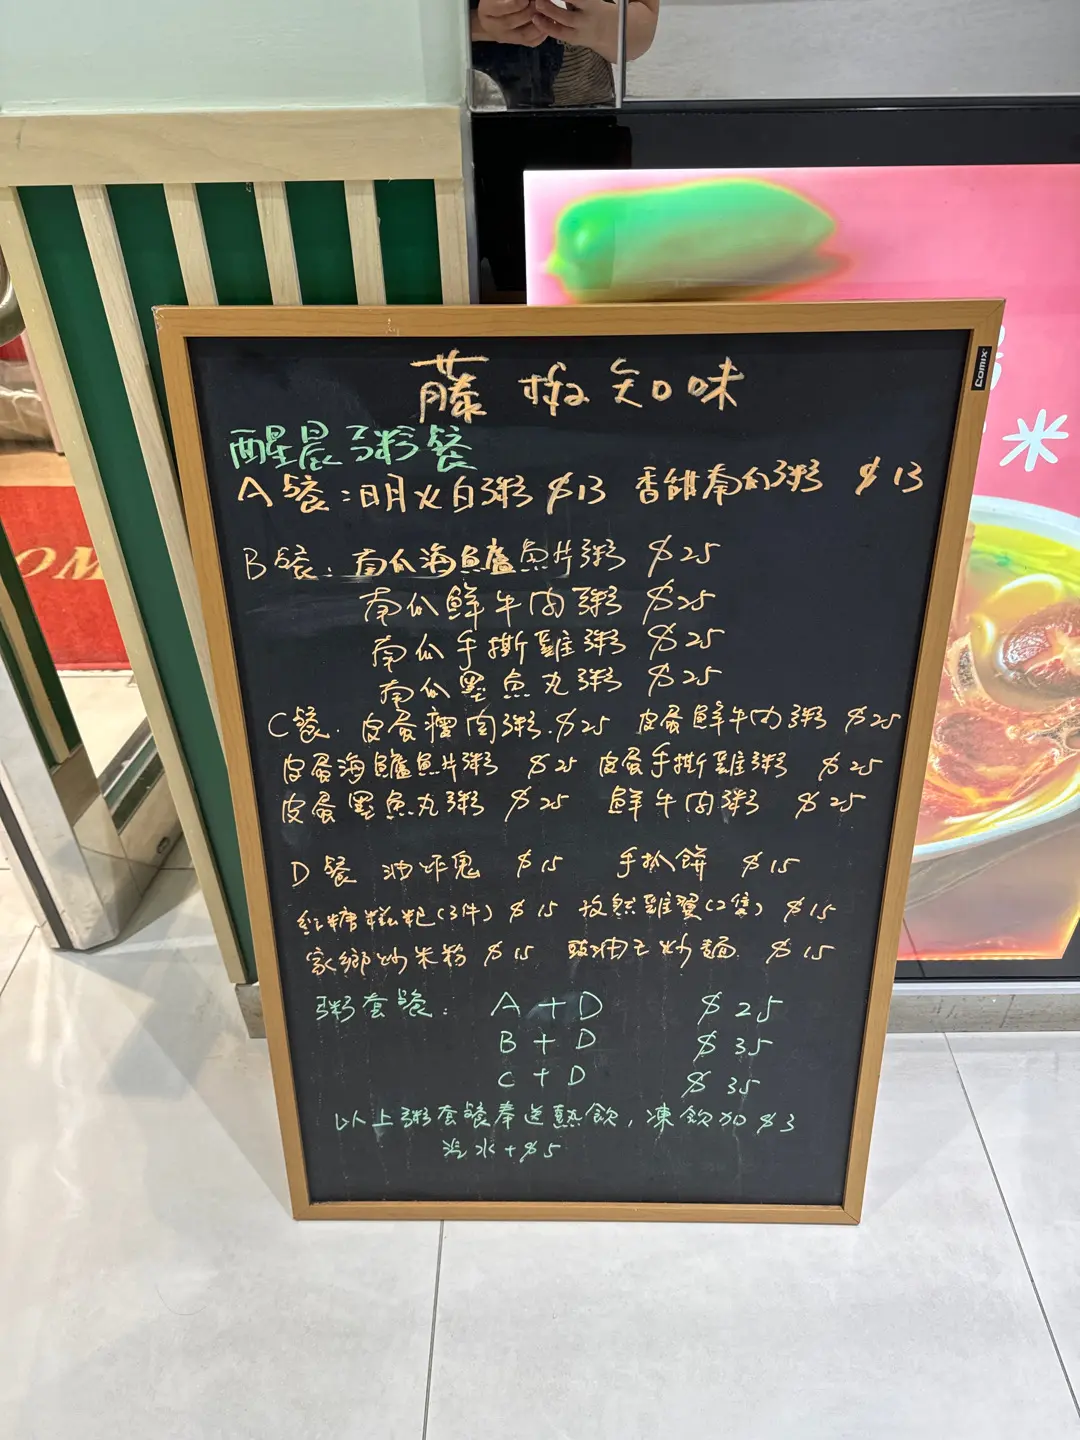 藤椒知味
COMIX
醒晨粥餐
A餐:明火白粥 $13 香甜南瓜粥 $13
米
OM
B餐:南瓜海鱸魚片粥 $25
南瓜鮮牛肉粥 $25
南瓜手撕雞粥 $25
南瓜墨魚丸粥 $25
C餐.皮蛋瘦肉粥.$25 皮蛋鮮牛肉粥 $25
皮蛋海鱸魚片粥 $25 皮蛋手撕雞粥 $25
皮蛋墨魚丸粥 $25 鮮牛肉粥 $25
D餐 油炸鬼 $15 手抓餅 $15
紅糖糍粑(3件) $15 孜然雞翼(2隻) $15
家鄉炒米粉 $15 豉油王炒麵 $15
粥套餐: A+D $25
B+D $35
C+D $35
以上粥套餐奉送熱飲,凍飲加$3
汽水+$5